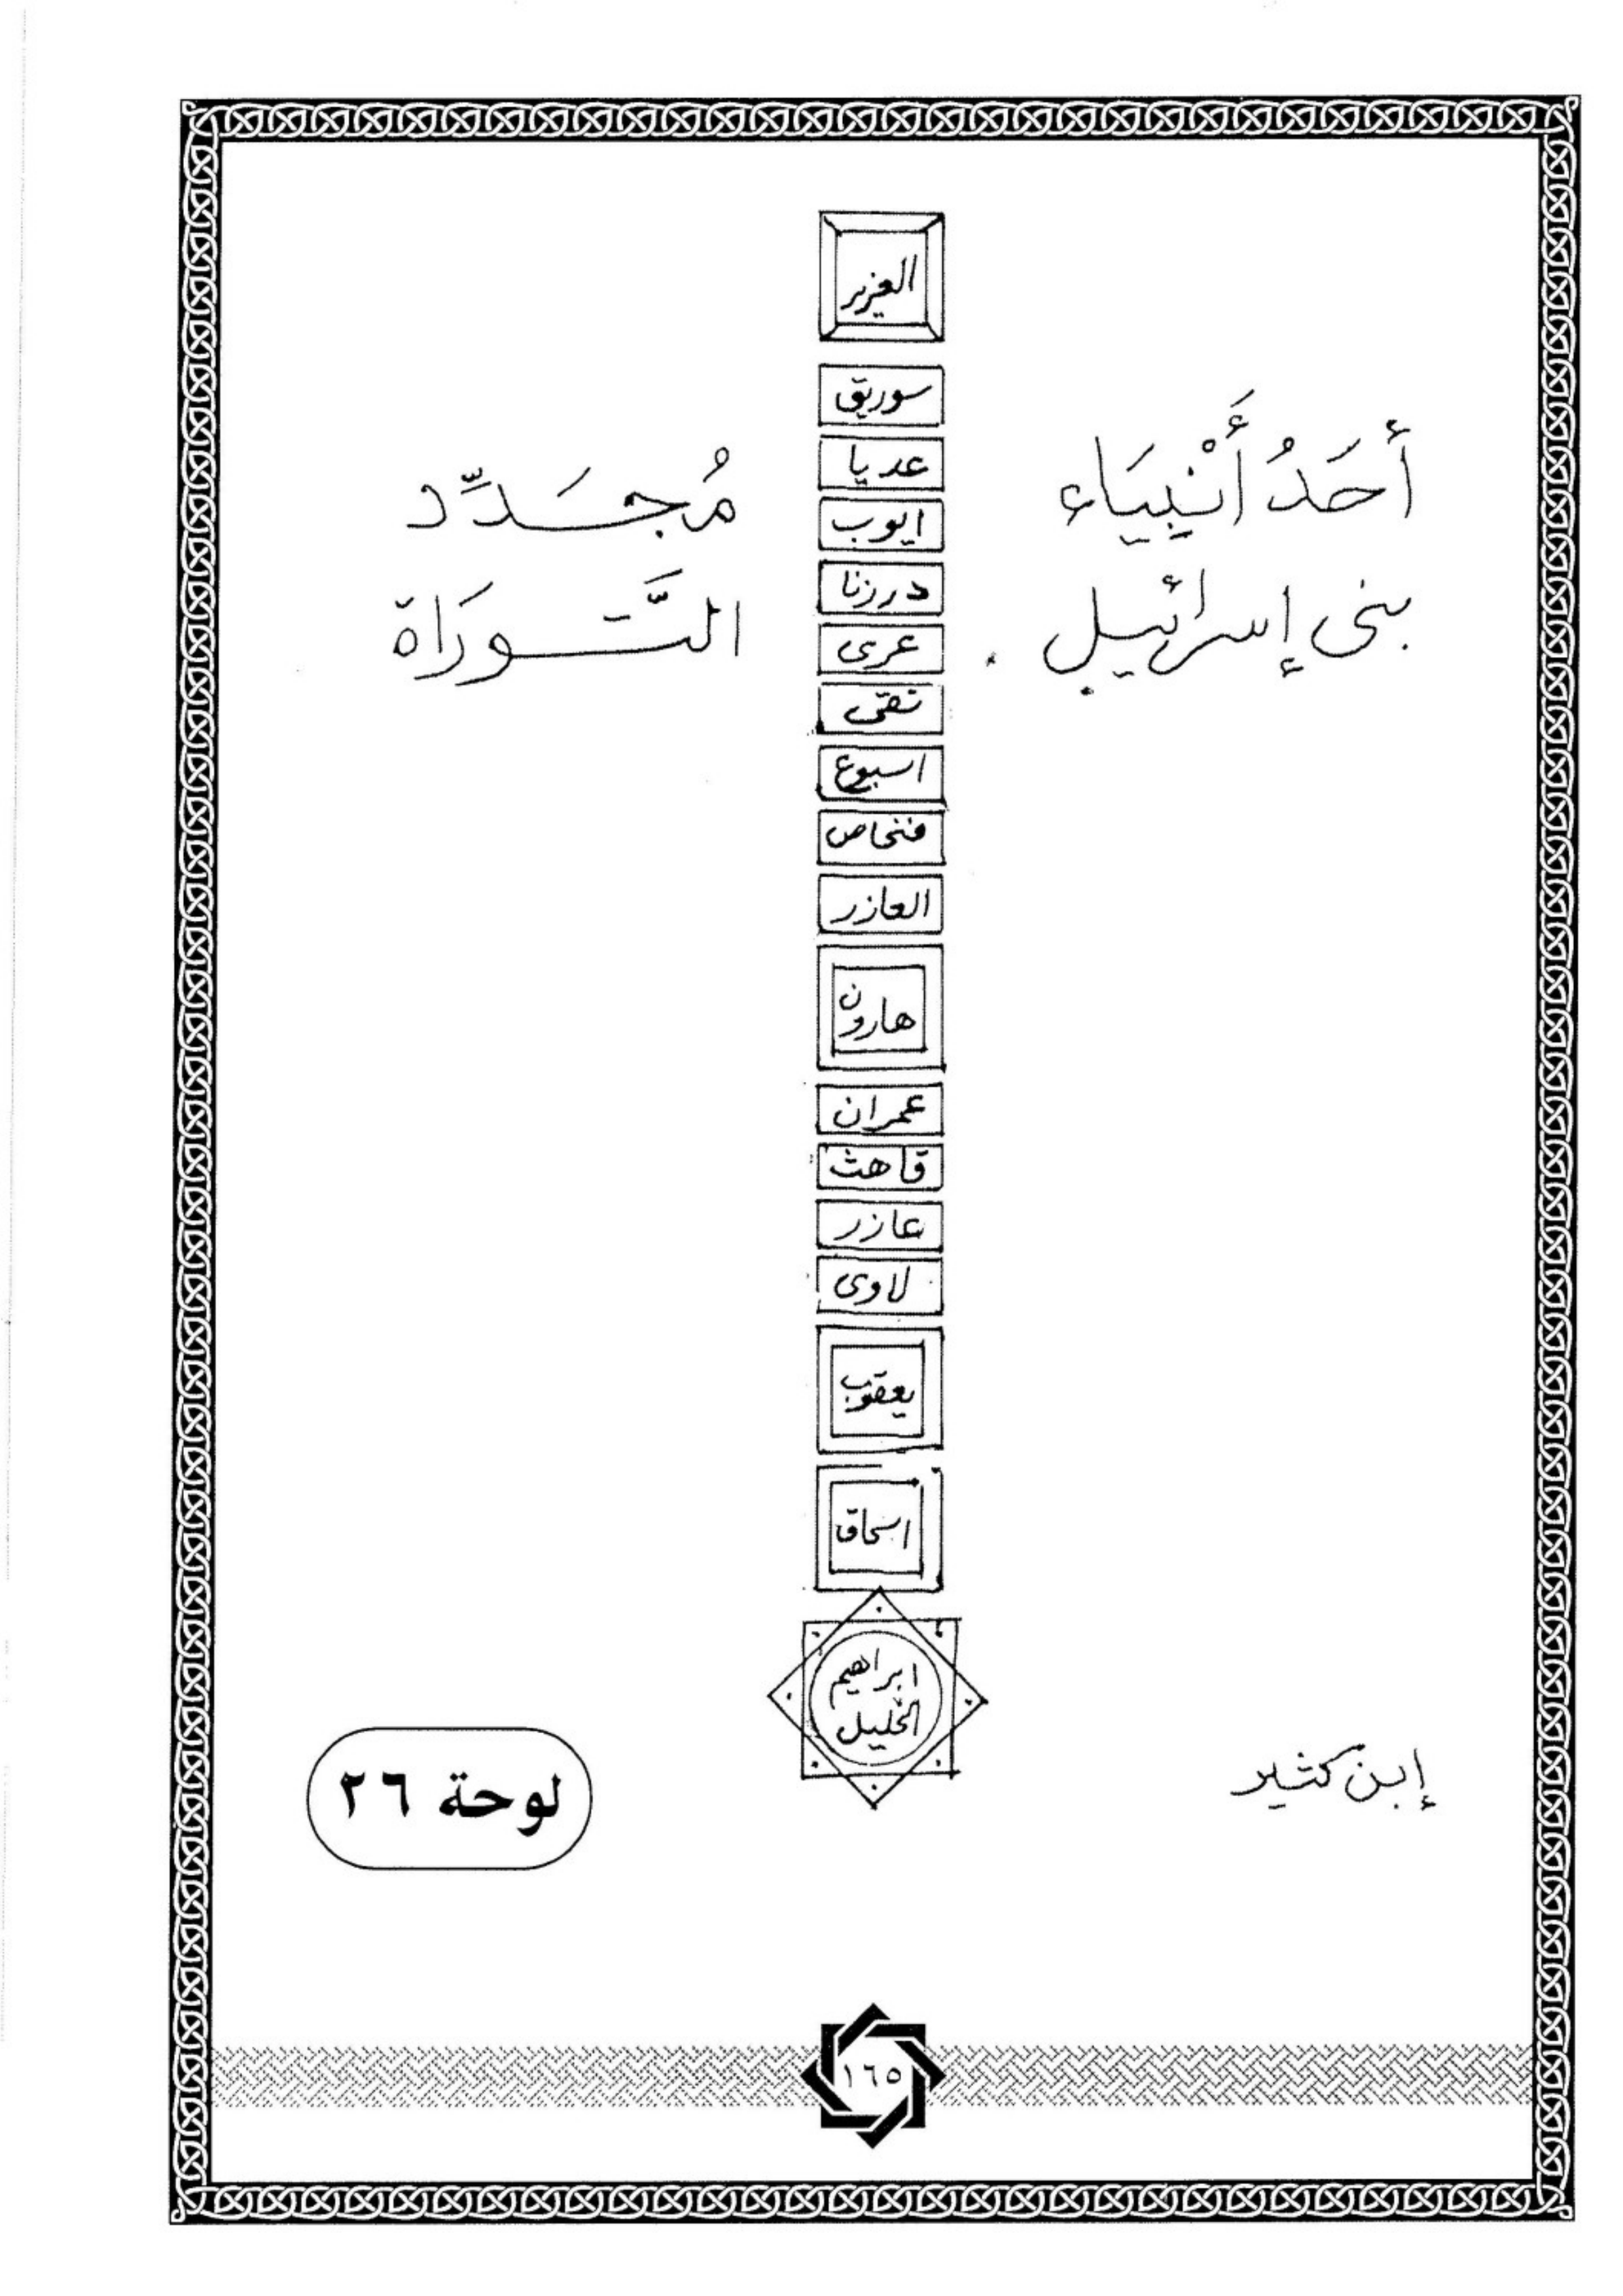 العزير
أَحَدُ أَنْبِيَاء
بنى إسرائيل .
مُجَدِّد
التَّورَاة
سوريق
عديا
ايوب
درزنا
عرى
تقى
اسبوع
فنحاص
العازر
هارون
عمران
قاهث
عازر
لاوى
يعقوب
اسحاق
ابراهيم
الخليل
إبن كثير
لوحة ٢٦
١٦٥